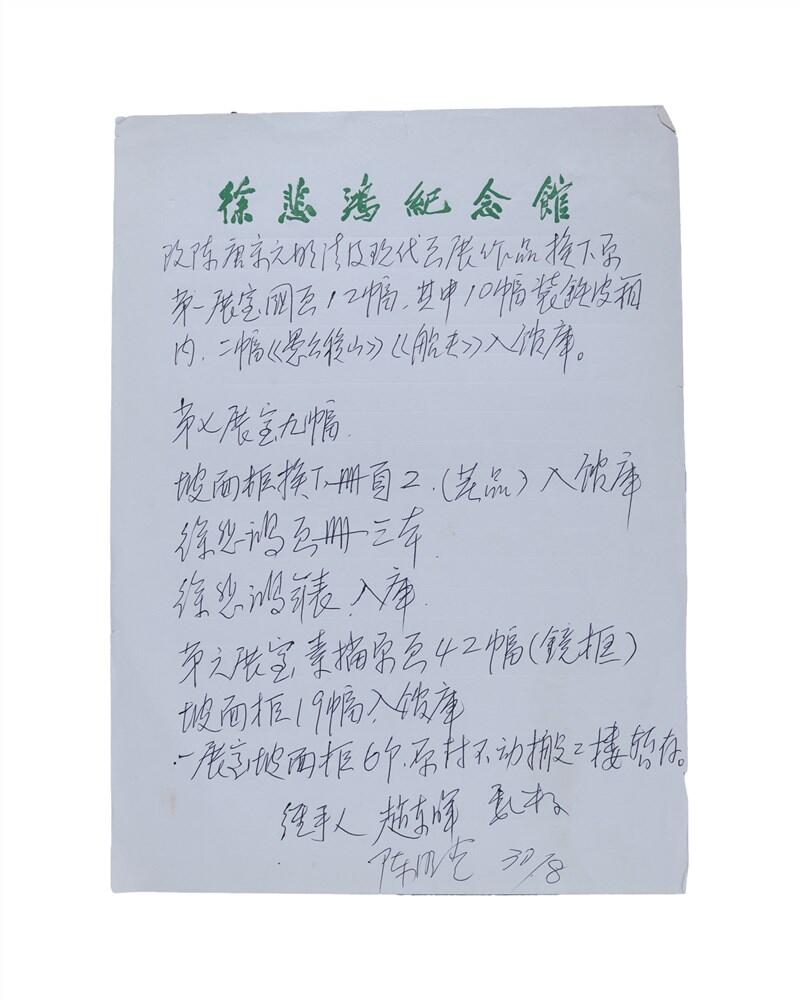 徐悲鸿纪念馆
改陈唐宋元明清及现代画展作品换下原
第一展室国画12幅,其中10幅装铁皮箱
内,二幅《愚公移山》《船夫》入馆库。
第七展室九幅.
坡面柜换下册页2.(藏品)入馆库
徐悲鸿画册三本.
徐悲鸿录表入库.
第六展室素描原画42幅(镜框)
坡面柜19幅入馆库
一展室坡面柜6个.原封不动搬二楼暂存。
经手人 赵东晖
陈 30/8